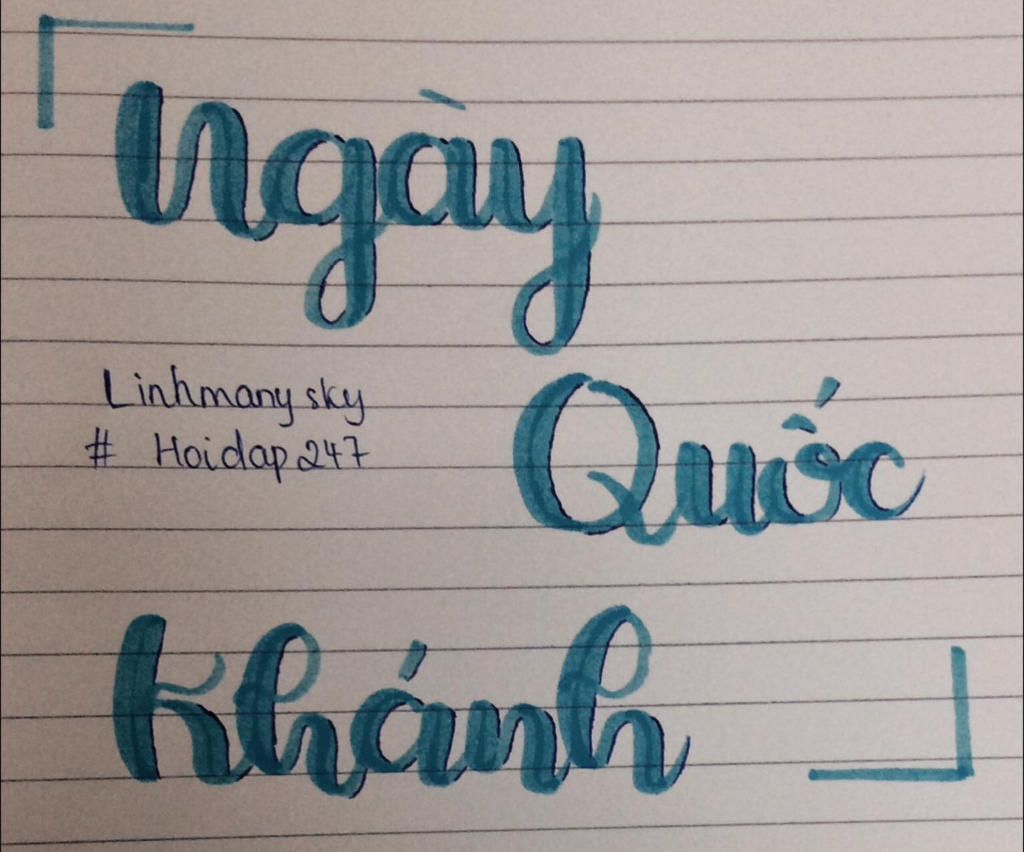 Ngày
Linhmany sky
# Hoidap247
Quốc
Khánh